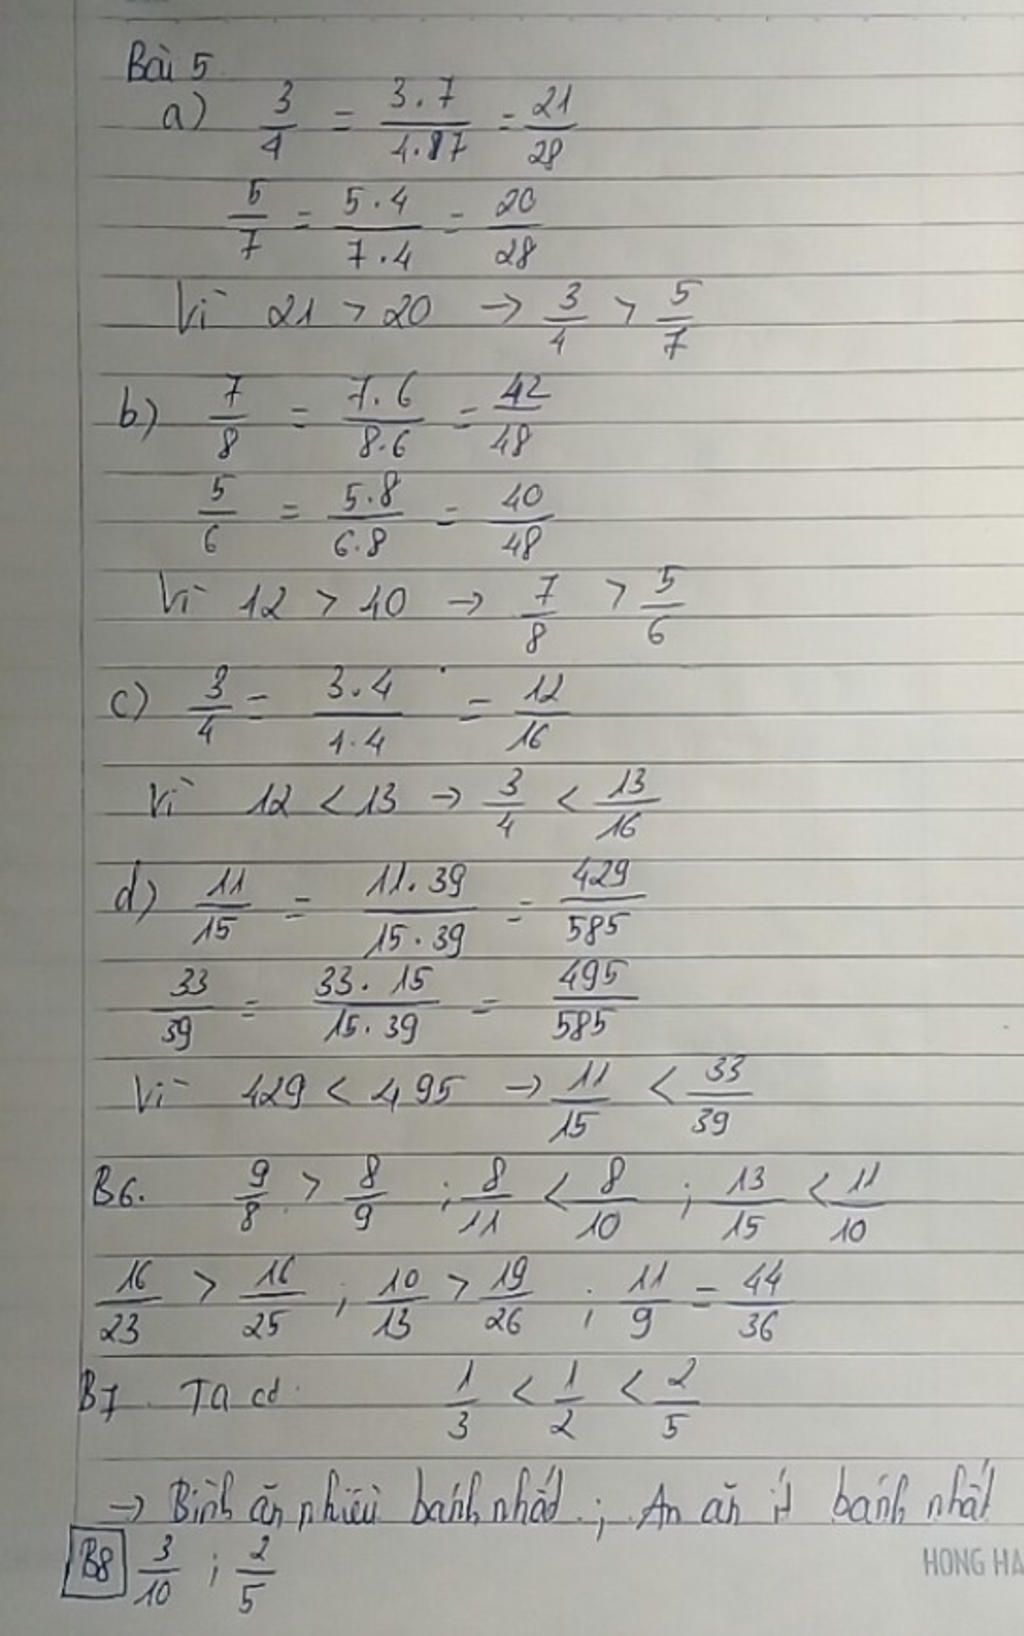 Bài 5
a) 3/4 = 3.7/4.87 = 21/28
5/7 = 5.4/7.4 = 20/28
Vì 21 > 20 → 3/4 > 5/7
b) 7/8 = 7.6/8.6 = 42/48
5/6 = 5.8/6.8 = 40/48
Vì 42 > 40 → 7/8 > 5/6
c) 3/4 = 3.4/4.4 = 12/16
Vì 12 < 13 → 3/4 < 13/16
d) 11/15 = 11.39/15.39 = 429/585
33/39 = 33.15/15.39 = 495/585
Vì 429 < 495 → 11/15 < 33/39
B6. 9/8 > 8/9 ; 8/11 < 8/10 ; 13/15 < 11/10
16/23 > 16/25 ; 10/13 > 19/26 ; 11/9 = 44/36
B7. Ta có 1/3 < 1/2 < 2/5
→ Bình ăn nhiều bánh nhất ; An ăn ít bánh nhất
B8 3/10 ; 2/5
HONG HA